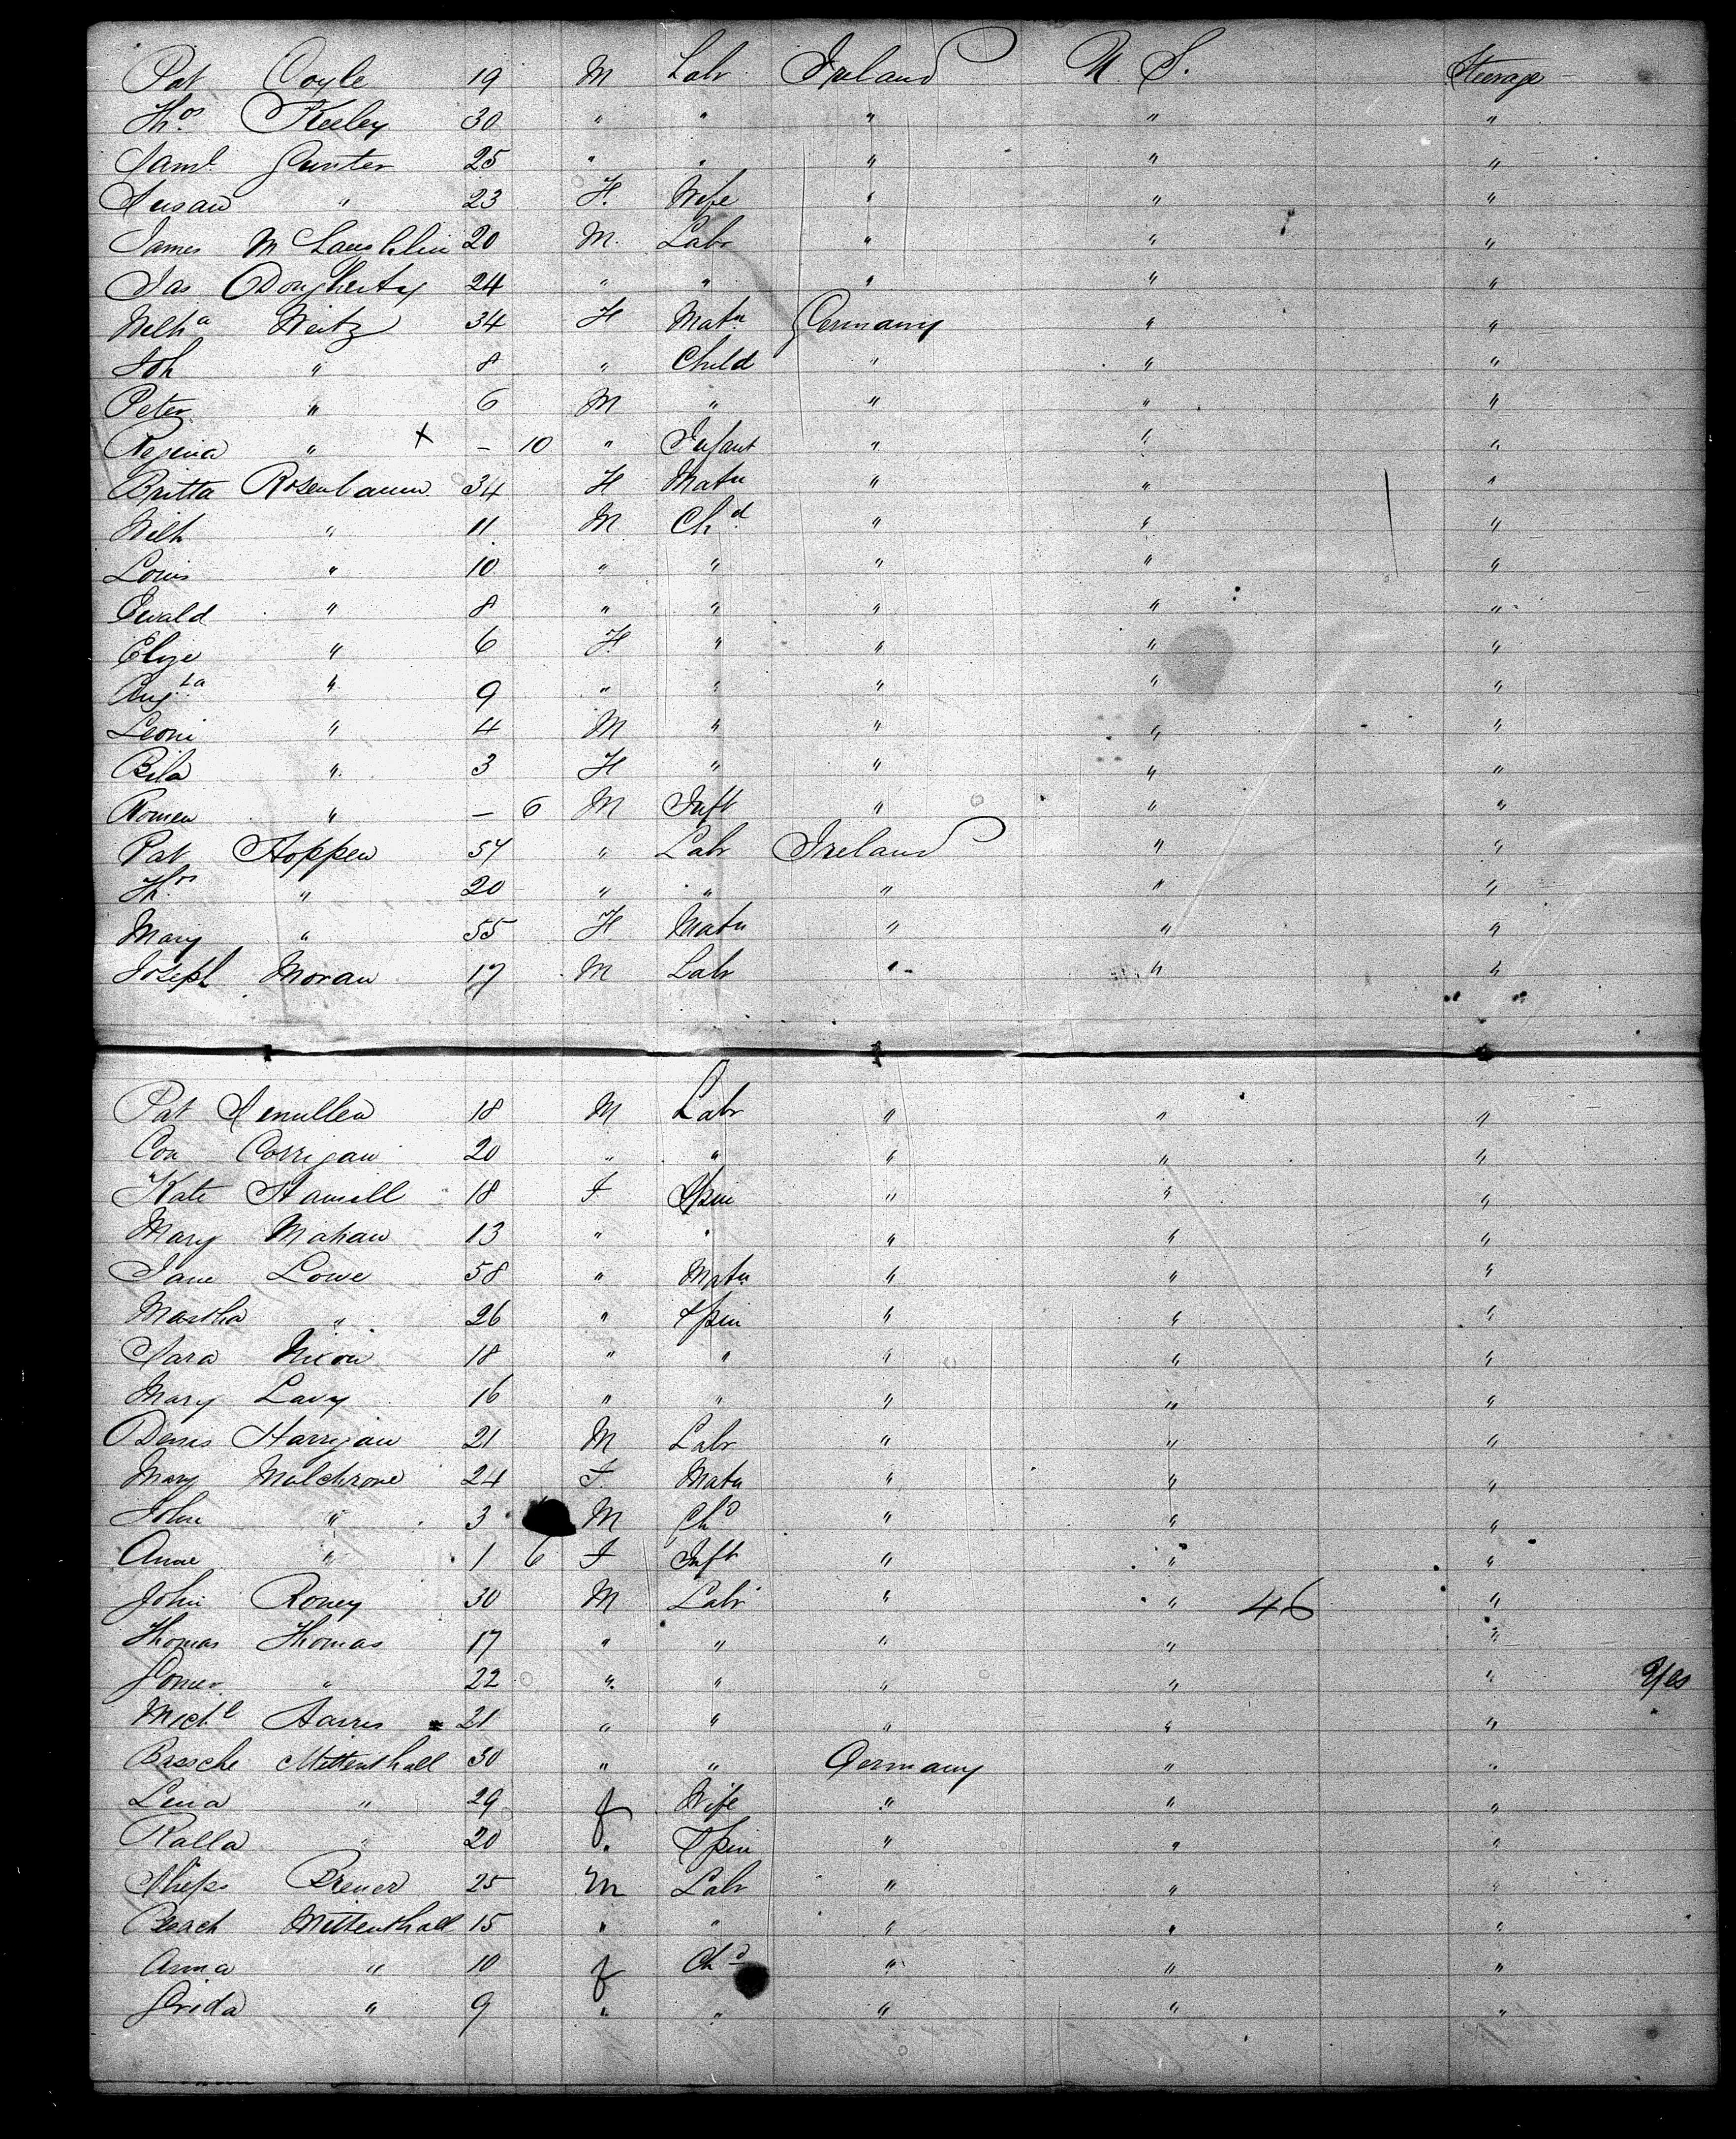 Pat Coyle 19 M Labr Ireland U. S. Steerage
Thos Keeley 30 " " " " "
Saml Gunter 25 " " " " "
Susan " 23 F. Wife " " "
James McLaughlin 20 M. Labr " " "
Jas ODougherty 24 " " " " "
Wilha Weitz 34 F Matn Germany " "
Joh " 8 " Child " " "
Peter " 6 M " " " "
Regina " x – 10 " Infant " " "
Britta Rosenbaum 34 F Matn " " "
Wilh " 11 M Chd " " "
Louis " 10 " " " " "
Ewald " 8 " " " " "
Elize " 6 F. " " " "
Augta " 9 " " " " "
Leoni " 4 M " " " "
Bila " 3 F " " " "
" – 6 M Inft " " "
Pat Hoppen 54 " Labr Ireland " "
Thos " 20 " " " " "
Mary " 55 F Matn " " "
Joseph Moran 17 M Labr " " "
Pat 18 M Labr " " "
Con Corrigan 20 " " " " "
Kate Hamill 18 F Spin " " "
Mary Mahan 13 " " " " "
Jane Lowe 58 " Matn " " "
Martha " 26 " Spin " " "
Sara Nixon 18 " " " " "
Mary Lavy 16 " " " " "
Denis Harrigan 21 M Labr " " "
Mary Mulchrone 24 F. Matn " " "
John " 3 M Chd " " "
Anne " 1 6 F Inft " " "
John Roney 30 M Labr " " 46 "
Thomas Thomas 17 " " " " "
" 22 " " " " " Yes
Michl Harris 21 " " " " "
Mittenthall 30 " " Germany " "
Lena " 29 f Wife " " "
Ralla " 20 " Spin " " "
Breuer 25 M Labr " " "
Mittenthall 15 " " " " "
Anna " 10 f Chd " " "
Frida " 9 " " " " "